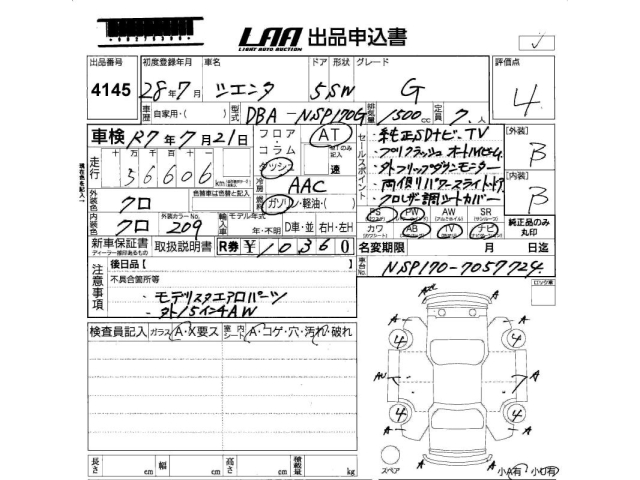 LAA 出品申込書
LIGHT AUTO AUCTION
出品番号 初度登録年月 車名 ドア 形状 グレード 評価点
4145 28年7月 シエンタ 5 SW G 4
車歴 自家用・( ) 型式 DBA-NSP170G 排気量 1500cc 定員 7人
車検 R7年7月21日 フロア・コラム AT
ダッシュ MTのみ記入 速
走行 十万 万 千 百 十
56606 km
冷房 AAC
セールスポイント
・純正SDナビ・TV
・プリクラッシュ オートハイビーム
・外フリップダウンモニター
・両側リパワースライドドア
・クロザー調シートカバー
【外装】 B
【内装】 B
外装色 クロ 色替車は色替と記入
燃料 ガソリン・軽油・( )
内装色 クロ 外装カラーNo. 209 輸入車 モデル年式 年・不明 D車・並 右H・左H
PS PW AW SR
カワ AB TV ナビ
純正品のみ丸印
新車保証書 取扱説明書 R券 ¥10360
ディーラー捺印があるもの
名変期限 月 日迄
車台No. NSP170-7057724
注意事項
後日品【 】
不具合箇所等
・モデリスタエアロパーツ
・外15インチAW
ロック車
検査員記入 ガラスA・X要ス 室内シートA・コゲ・穴・汚れ・破れ
A
4 4
A A
AU A
4 4
A A
A A
スペア
長さ cm 幅 cm 高さ cm 積載量 kg
小A有・小U有